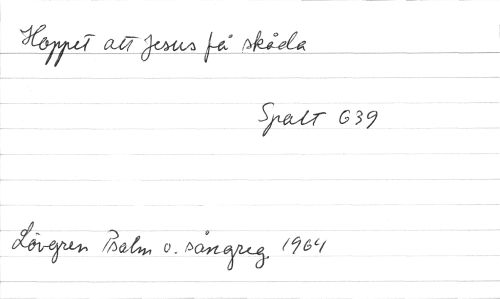 Hoppet att Jesus få skåda
Spalt 639
Lövgren Psalm o. sångreg. 1964